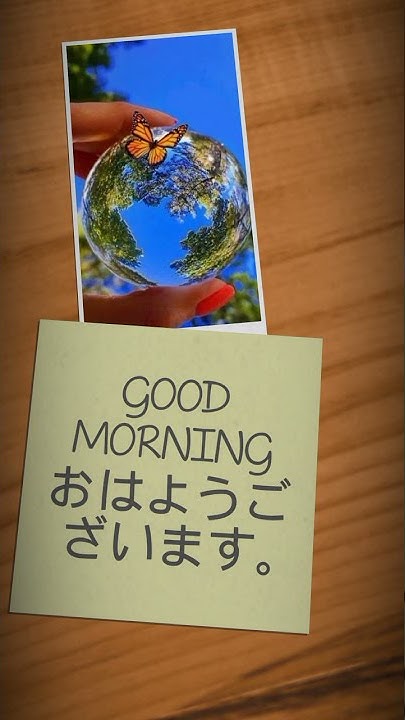 GOOD
MORNING
おはようご
ざいます。